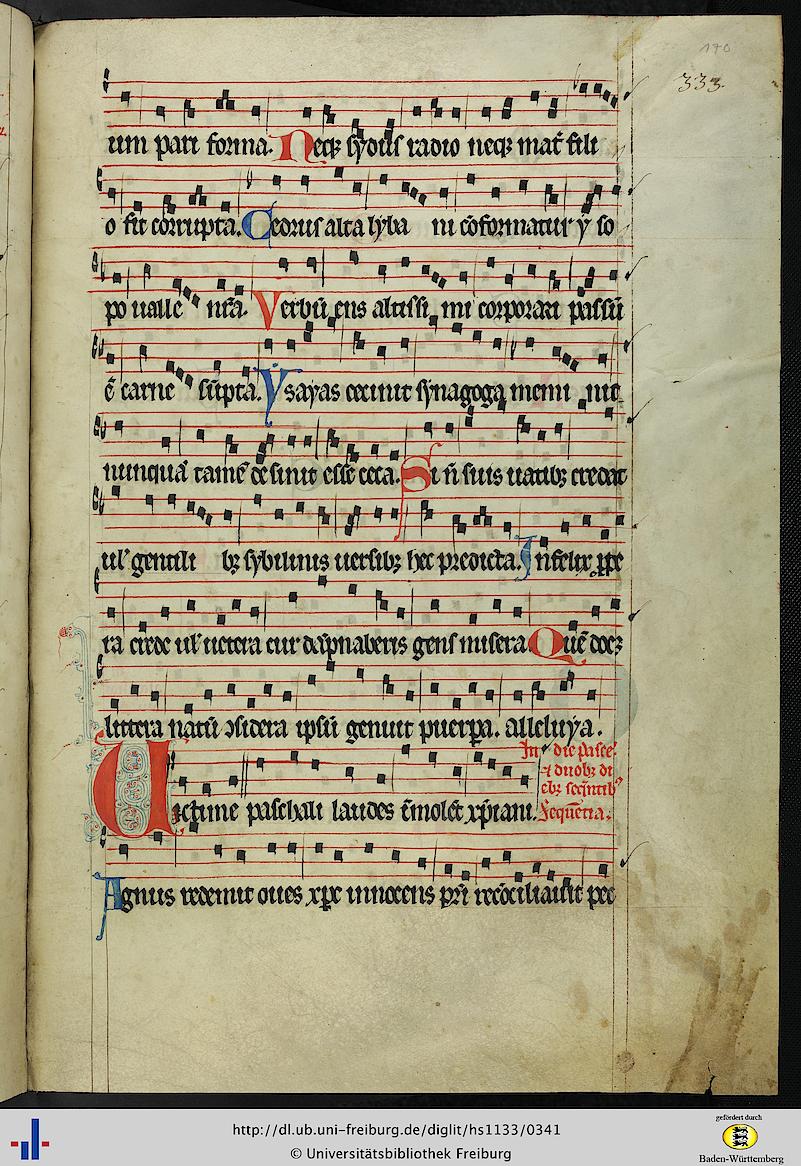 170
333.
um pari forma. Neq; sydus radio neq; mat̄ fili
o fit corrupta. Cedrus alta lyba ni cōformatur ȳ so
po ualle nr̄a. Verbū ens altissi mi corporari passū
ē carne sūpta. Ysayas cecinit synagoga memi nit
nunquā tamē desinit esse ceca. Si n̄ suis uatib; credat
ul' gentili b; sybillinis uersib; hec predicta. Infelix ꝓpe
ra crede ul' uetera cur dāpnaberis gens misera Quē doc;
littera natū ↄsidera ipsū genuit puerpa. Alleluya.
In die pasce'
et duob; di
eb; seqn̄tib'
Sequēn̄a.
Victime paschali laudes ī̄molēt xp̄iani.
Agnus redemit oues xp̄c innocens pr̄i recōciliauit pec
http://dl.ub.uni-freiburg.de/diglit/hs1133/0341
© Universitätsbibliothek Freiburg
gefördert durch
Baden-Württemberg